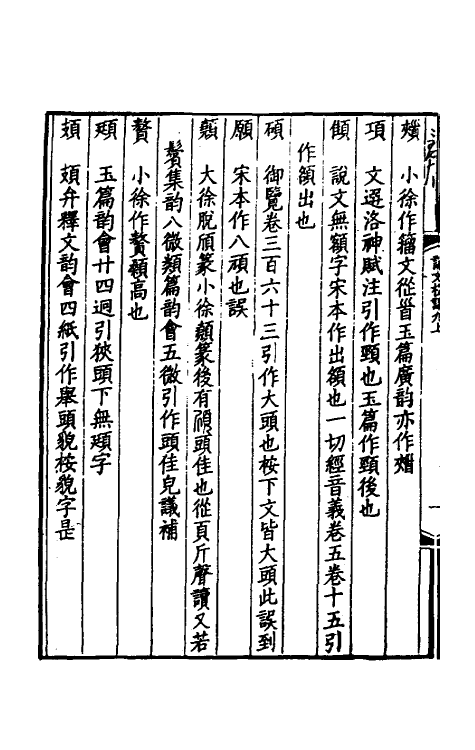 說文校議九上
一
小徐作籀文從𦣻玉篇廣韵亦作
項 文選洛神賦注引作頸也玉篇作頸後也
顀 說文無額字宋本作出額也一切經音義卷五卷十五引
作頟出也
碩 御覽卷三百六十三引作大頭也桉下文皆大頭此誤到
願 宋本作八頑也誤
顤 大徐脫頎篆小徐顤篆後有頎頭佳也從頁斤聲讀又若
鬢集韵八微類篇韵會五微引作頭佳皃議補
小徐作贅顤高也
頲 玉篇韵會廿四迥引狹頭下無頲字
頍 頍弁釋文韵會四紙引作舉頭貌桉貌字是